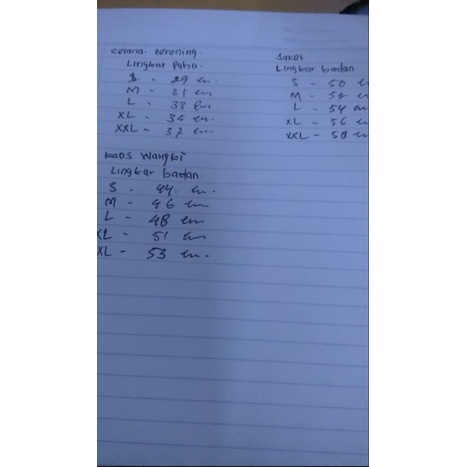 celana trening.
Lingkar Paha.
S - 29 cm
M - 31 cm
L - 33 cm
XL - 35 cm.
XXL - 37 cm.
Jaket
Lingkar badan
S - 50 c
M - 52 c
L - 54 cm
XL - 56 c
XXL - 58 c
kaos wangki
Lingkar badan.
S - 44. cm.
M - 46 cm
L - 48 cm
XL - 51 cm
XL - 53 cm.